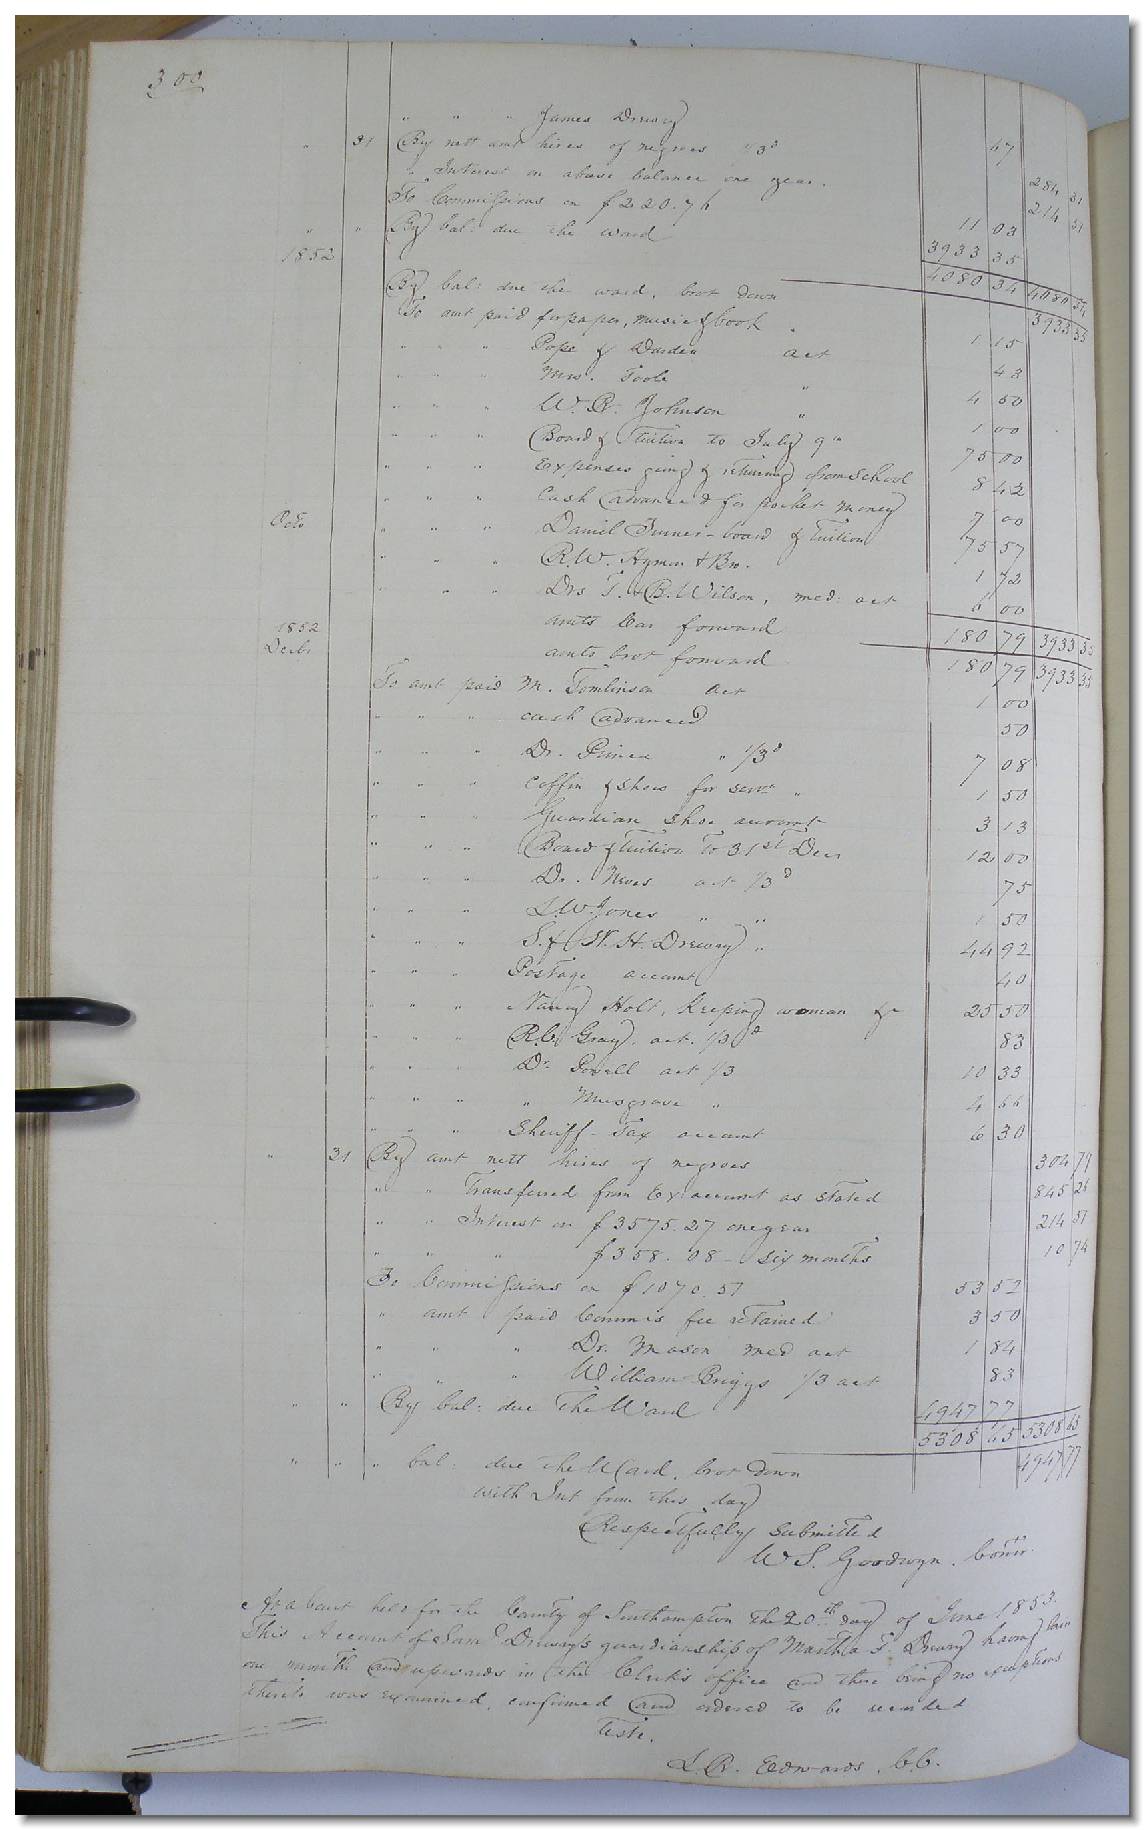 300
" " " James Drewry 67
" 31 By nett amt hires of negroes 1/3d 284 31
" Interest on above balance one year. 214 51
To Commissions on $220.76 11 03
" " By bal: due the ward 3933 35
1852 4080 34 4080 34
By bal: due the ward, brot down 3933 35
To amt paid for paper, music & book 1 15
" " " Pope & Darden act 42
" " " Mrs. Toole " 4 50
" " " W. R. Johnson " 1 00
" " " Board & Tuition to July 9" 75 00
" " " Expenses going & returning from School 8 42
" " " Cash advanced for pocket money 7 00
Octo " " " Daniel Turner - board & Tuition 75 57
" " " R. W. Hyman & Bro. 1 72
" " " Drs T. & B. Wilson, med: act 6 00
1852 amts Car forward 180 79 3933 35
Decbr amts brot forward 180 79 3933 35
To amt paid M. Tomlinson act 1 00
" " " cash advanced 50
" " " Dr. Prince " 1/3d 7 08
" " " Coffin & shoes for servt " 1 50
" " " Guardian Shoe account 3 13
" " " Board & Tuition To 31st Decr 12 00
" " " Dr. act 1/3d 75
" " " L. W. Jones " " 1 50
" " " S. & W. H. Drewry " 44 92
" " " Postage account 40
" " " Nancy Holt, Keeping woman &c 25 50
" " " R. C. Gray. act. 1/3d 83
" " " Dr. Powell act 1/3 10 33
" " " " Musgrave " 4 66
" " " Sheriff - Tax account 6 30
" 31 By amt nett hires of negroes 304 79
" " Transferred from Ex: account as Stated 845 26
" " Interest on $3575.27 one year 214 51
" " " $358.08 - six months 10 74
To Commissions on $1070.51 53 52
" amt paid Commis fee retained 3 50
" " " Dr. Mason med act 1 84
" " " William Briggs 1/3 act 83
" " By bal: due The Ward 4947 77
5308 65 5308 65
" " " bal: due the Ward, brot down 4947 77
with Int from this day
Respectfully Submitted
W S. Goodwyn. Comr.
At a Court held for the County of Southampton the 20th day of June 1853.
This Account of Saml Drewry's guardianship of Martha T. Drewry having lain
one month and upwards in the Clerk's office and there being no exceptions
thereto was examined, confirmed and ordered to be recorded
Teste.
L. R. Edwards, C.C.